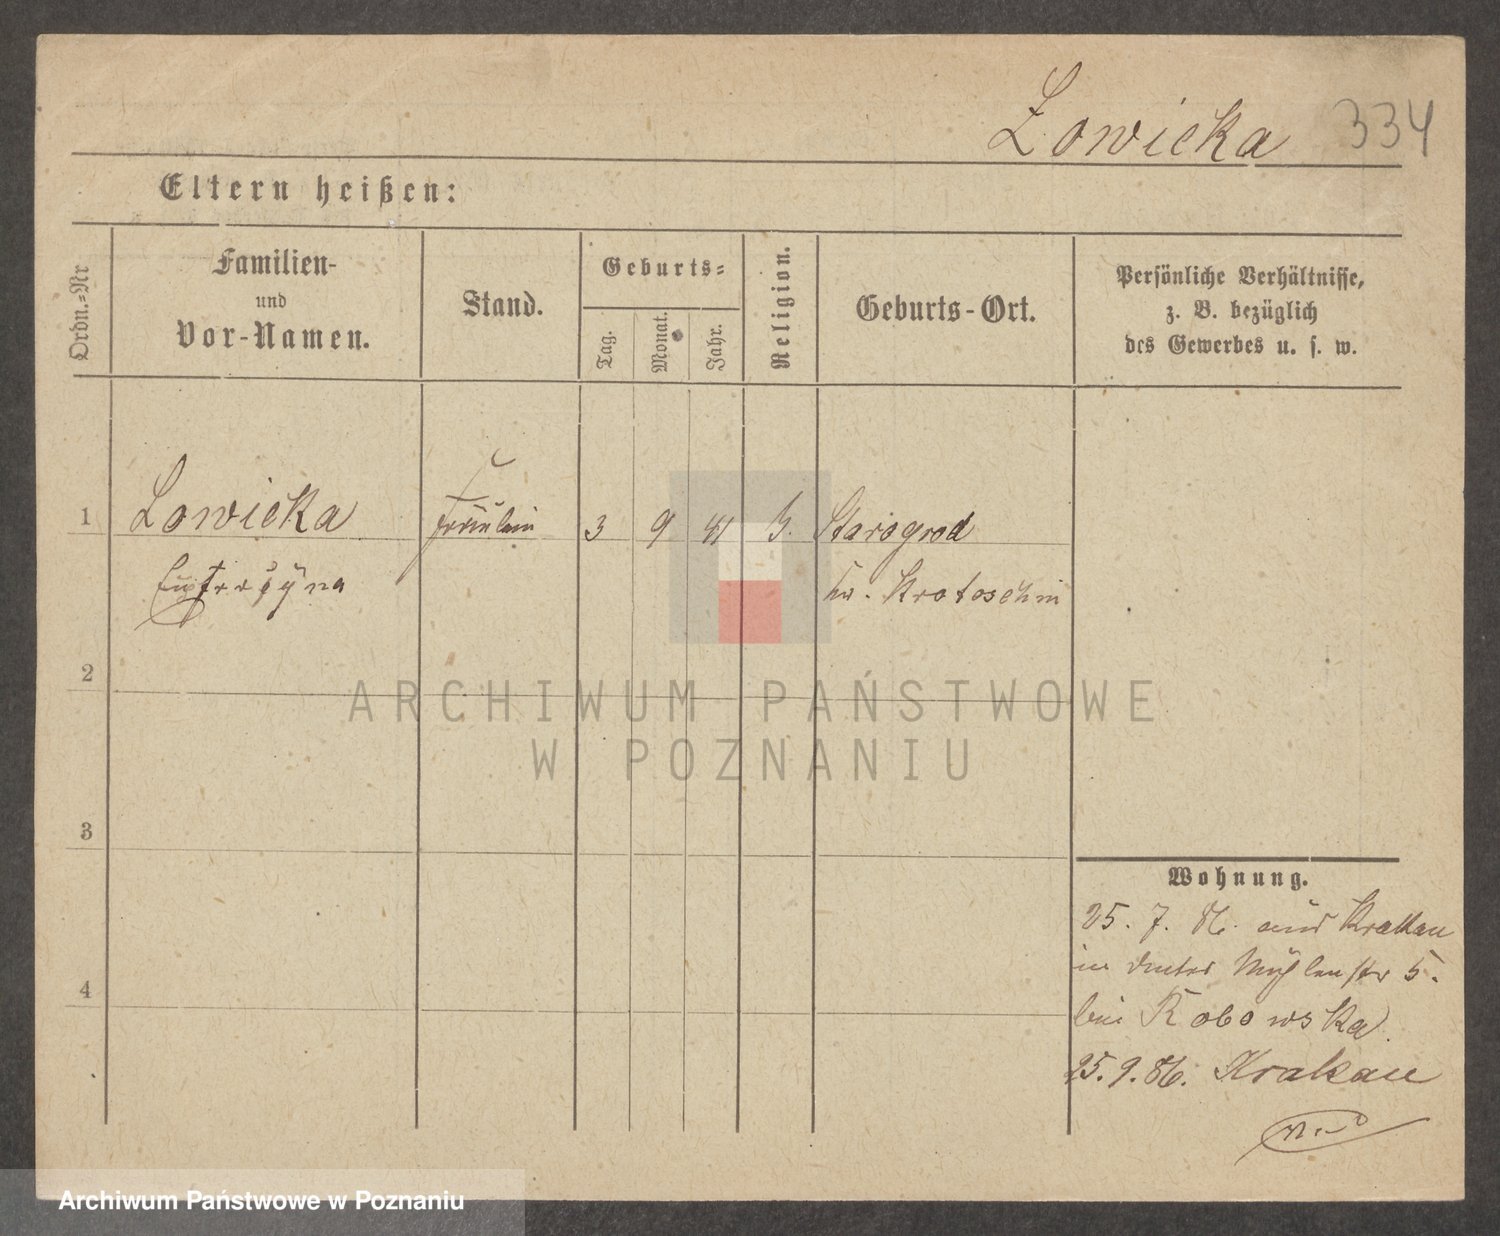 Łowicka 334
Eltern heißen:
Ordn.=Nr
Familien-
und
Vor-Namen.
Stand.
Geburts=
Tag.
Monat.
Jahr.
Religion.
Geburts-Ort.
Persönliche Verhältnisse,
z. B. bezüglich
des Gewerbes u. s. w.
1 Lowicka Fräulein 3 9 41 Starogrod
Kr. Krotoschin
2
3
4
ARCHIWUM PAŃSTWOWE
W POZNANIU
Wohnung.
25. 7. 86. aus Krakau
in Mühlenstr 5.
bei Robowska
25. 9. 86. Krakau
Archiwum Państwowe w Poznaniu